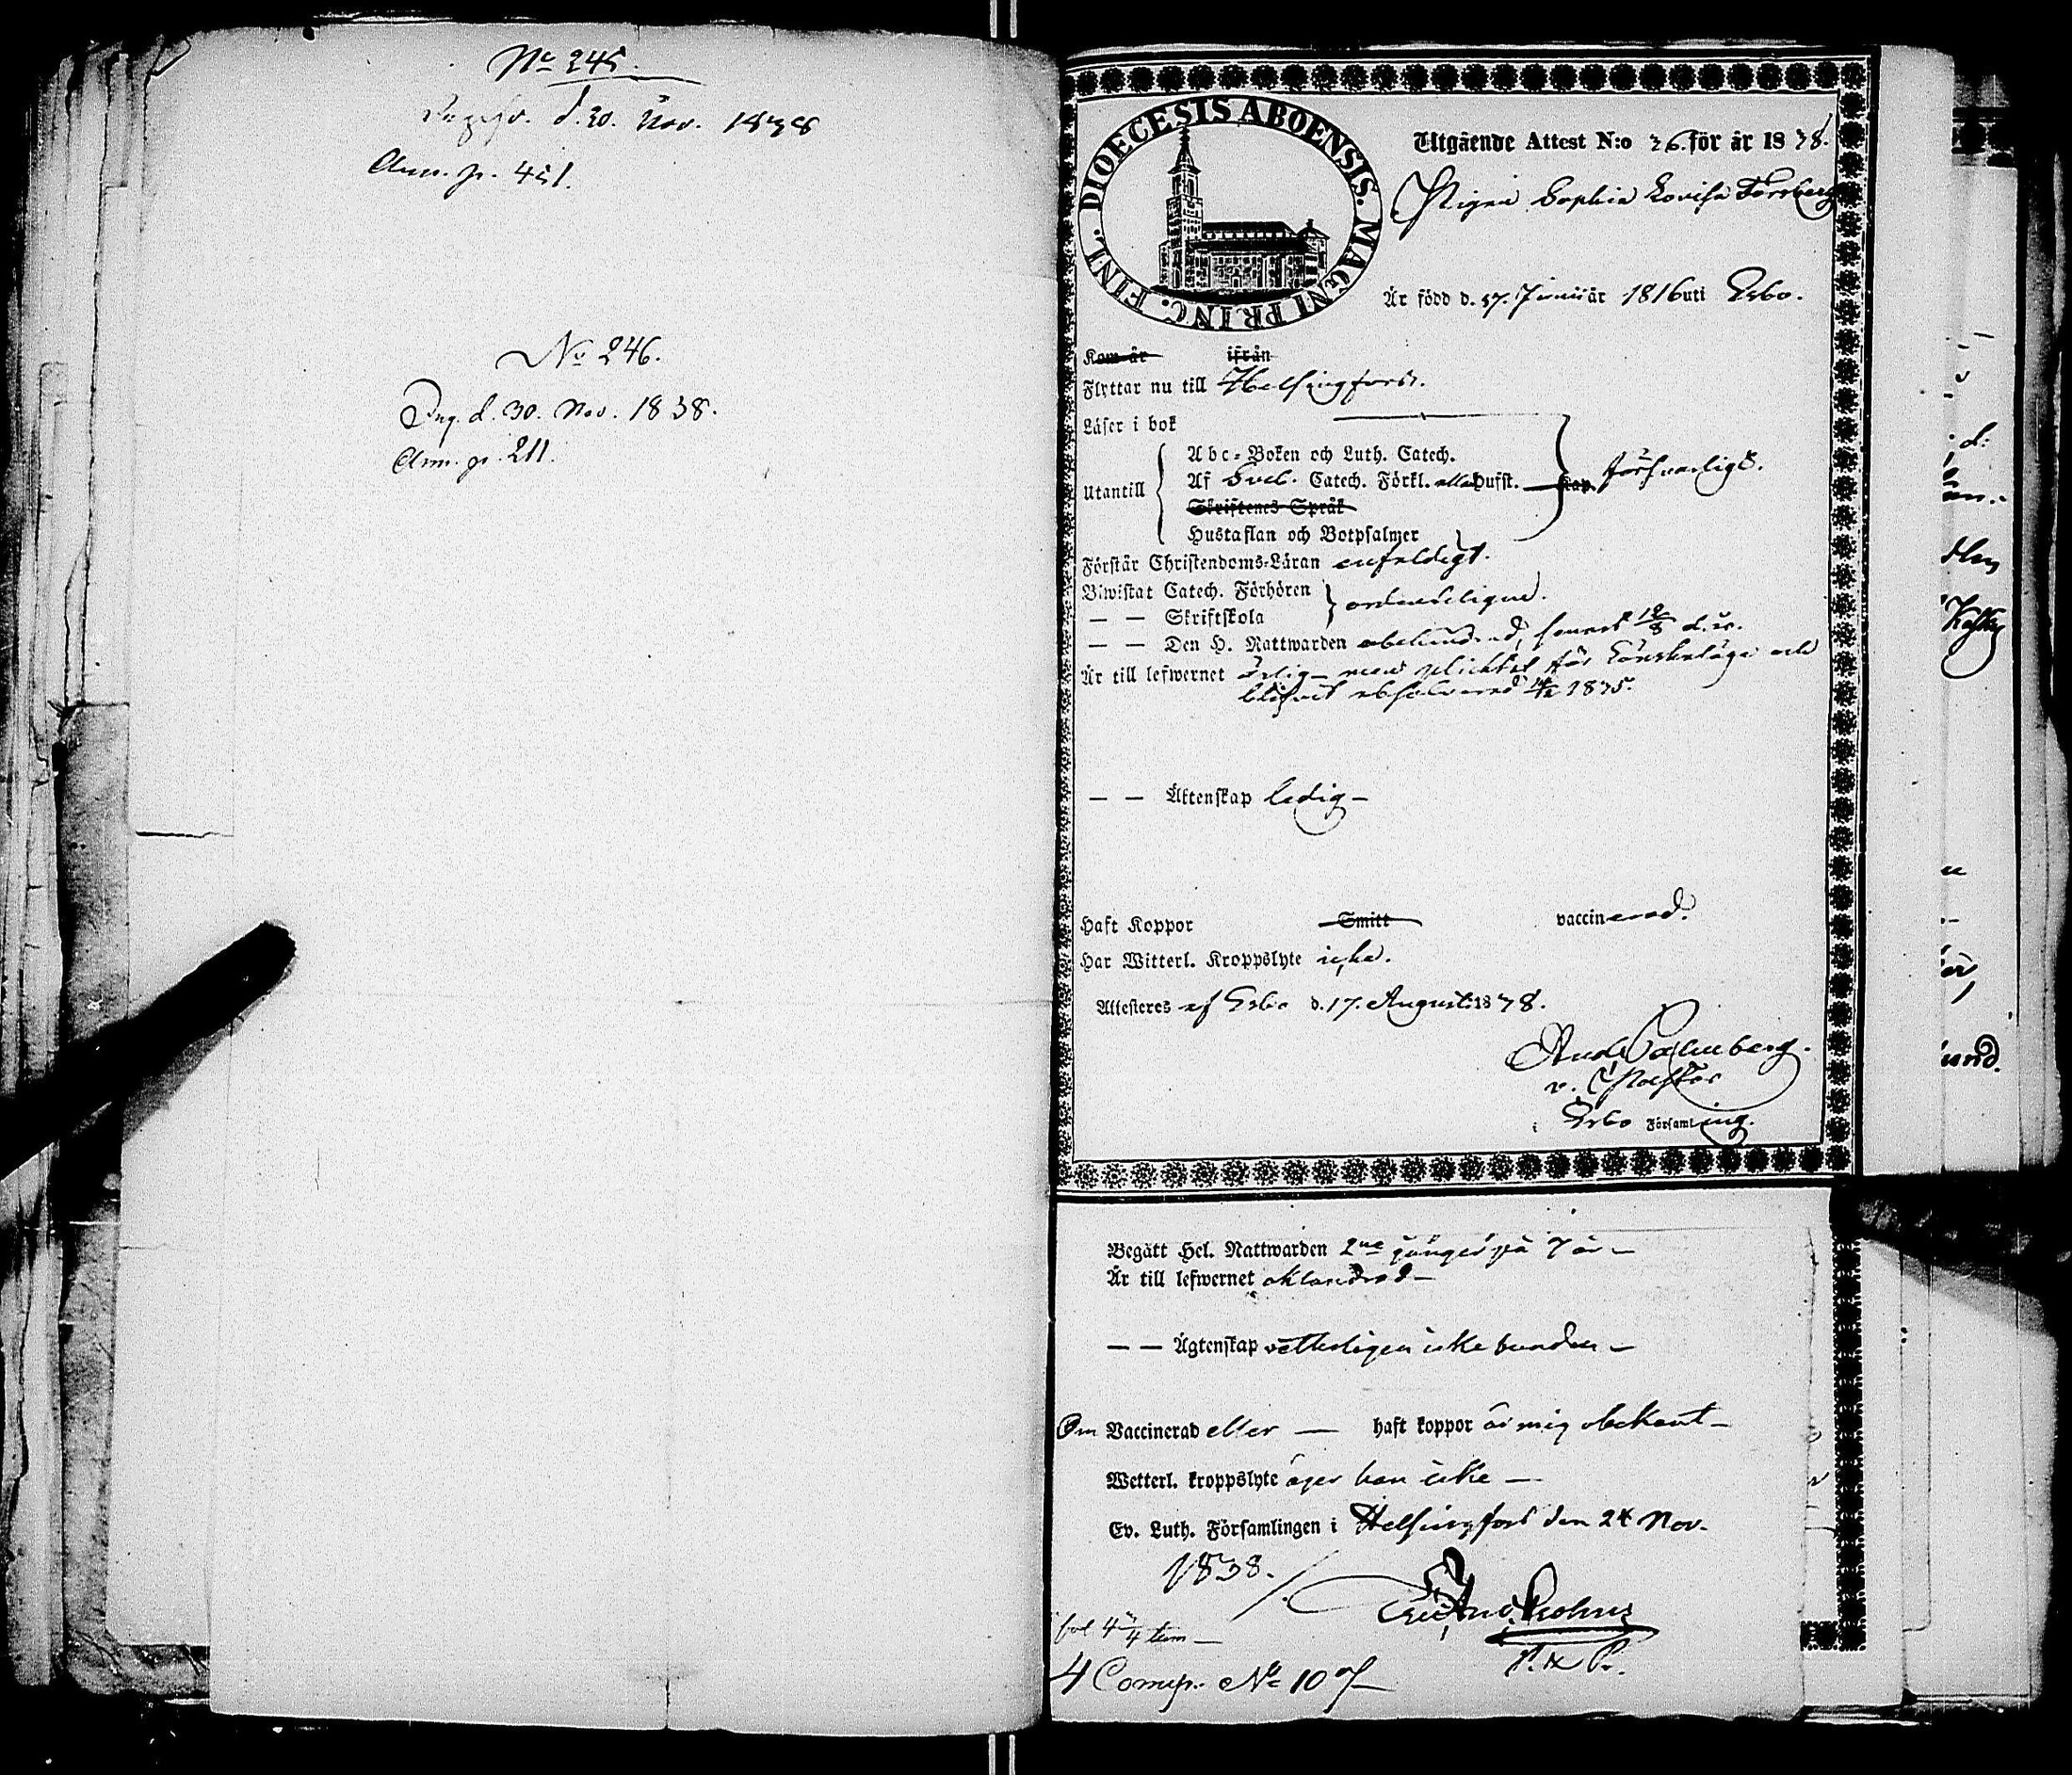 No 245.
d. 30. Nov. 1838
Ann. p. 451.
No 246.
Ing. d. 30. Nov. 1838.
Ann. p. 211.
DIOECESIS ABOENSIS. MAGNI PRINC. FINL.
Utgående Attest N:o 36. för år 1838.
Pigan Sophia Lovisa Forsberg
Är född d. 17. Januiär 1816 uti Esbo.
Kom år ifrån
Flyttar nu till Helsingfors.
Läser i bok
Utantill
Abc-Boken och Luth. Catech.
Af Sveb. Catech. Förkl. alla Hufst. Kap. försvarligt.
Skriftenes Språk
Hustaflan och Botpsalmer
Förstår Christendoms-Läran enfaldigt.
Biwistat Catech. Förhören
— — Skriftskola ordenteligen.
— — Den H. Nattwarden obehindrad, senast 12/8 d. å.
Är till lefwernet ärlig men plicktat för Lönskaläge och
blifvit absolverad 1835.
— — Äktenskap ledig —
Haft Koppor Smitt vaccinerad.
Har Witterl. Kroppslyte icke.
Attesteres af Esbo d. 17. August 1838.
And. Palmberg.
v. Pastor
i Esbo Församling.
Begått Hel. Nattwarden 2ne gånger på 7 år —
Är till lefwernet oklandrad —
— — Ägtenskap vetterligen icke bunden —
Om Vaccinerad eller — haft koppor är mig obekant —
Wetterl. kroppslyte äger han icke —
Ev. Luth. Församlingen i Helsingfors den 24 Nov.
1838.
4 tum —
4 Comp. No 107